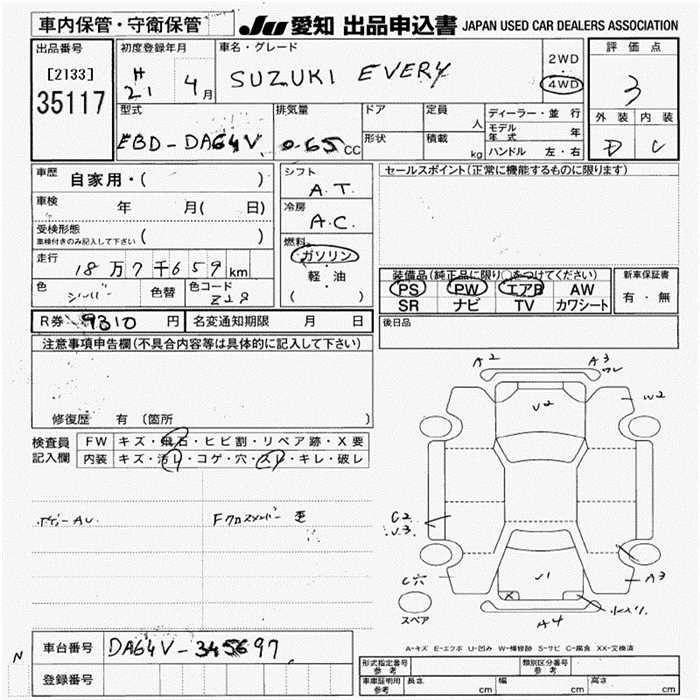 車内保管・守衛保管 JU 愛知 出品申込書 JAPAN USED CAR DEALERS ASSOCIATION
出品番号 初度登録年月 車名・グレード 2WD 評価点
[2133] H 21 4月 SUZUKI EVERY 4WD 3
35117 型式 排気量 ドア 定員 人 ディーラー・並行 外装 内装
EBD-DA64V 0.65cc 形状 積載 kg モデル年式 年 D C
ハンドル 左・右
車歴 自家用・( ) シフト A.T. セールスポイント(正常に機能するものに限ります)
車検 年 月( 日) 冷房 A.C.
受検形態 ( )
車検付きのみ記入して下さい
燃料 ガソリン
走行 18万7千659km 軽・油
装備品(純正品に限り○をつけてください) 新車保証書
色 シルバー 色替 色コード Z2S ( ) PS PW エアB AW 有・無
SR ナビ TV カワシート
R券 9310円 名変通知期限 月 日 後日品
注意事項申告欄(不具合内容等は具体的に記入して下さい)
修復歴 有 (箇所 )
検査員 FW キズ・飛石・ヒビ割・リペア跡・X要
記入欄 内装 キズ・汚レ・コゲ・穴・スレ・キレ・破レ
ボデーAU Fクロスメンバー歪
A2 A3
ワレ
V2 W2
C2
U3
C穴 U1 A3
X
スペア A4
A-キズ E-エクボ U-凹み W-補修跡 S-サビ C-腐食 XX-交換済
N 車台番号 DA64V-345697
登録番号
形式指定番号 参考 類別区分番号 参考
車庫証明用 参考 長さ cm 幅 cm 高さ cm